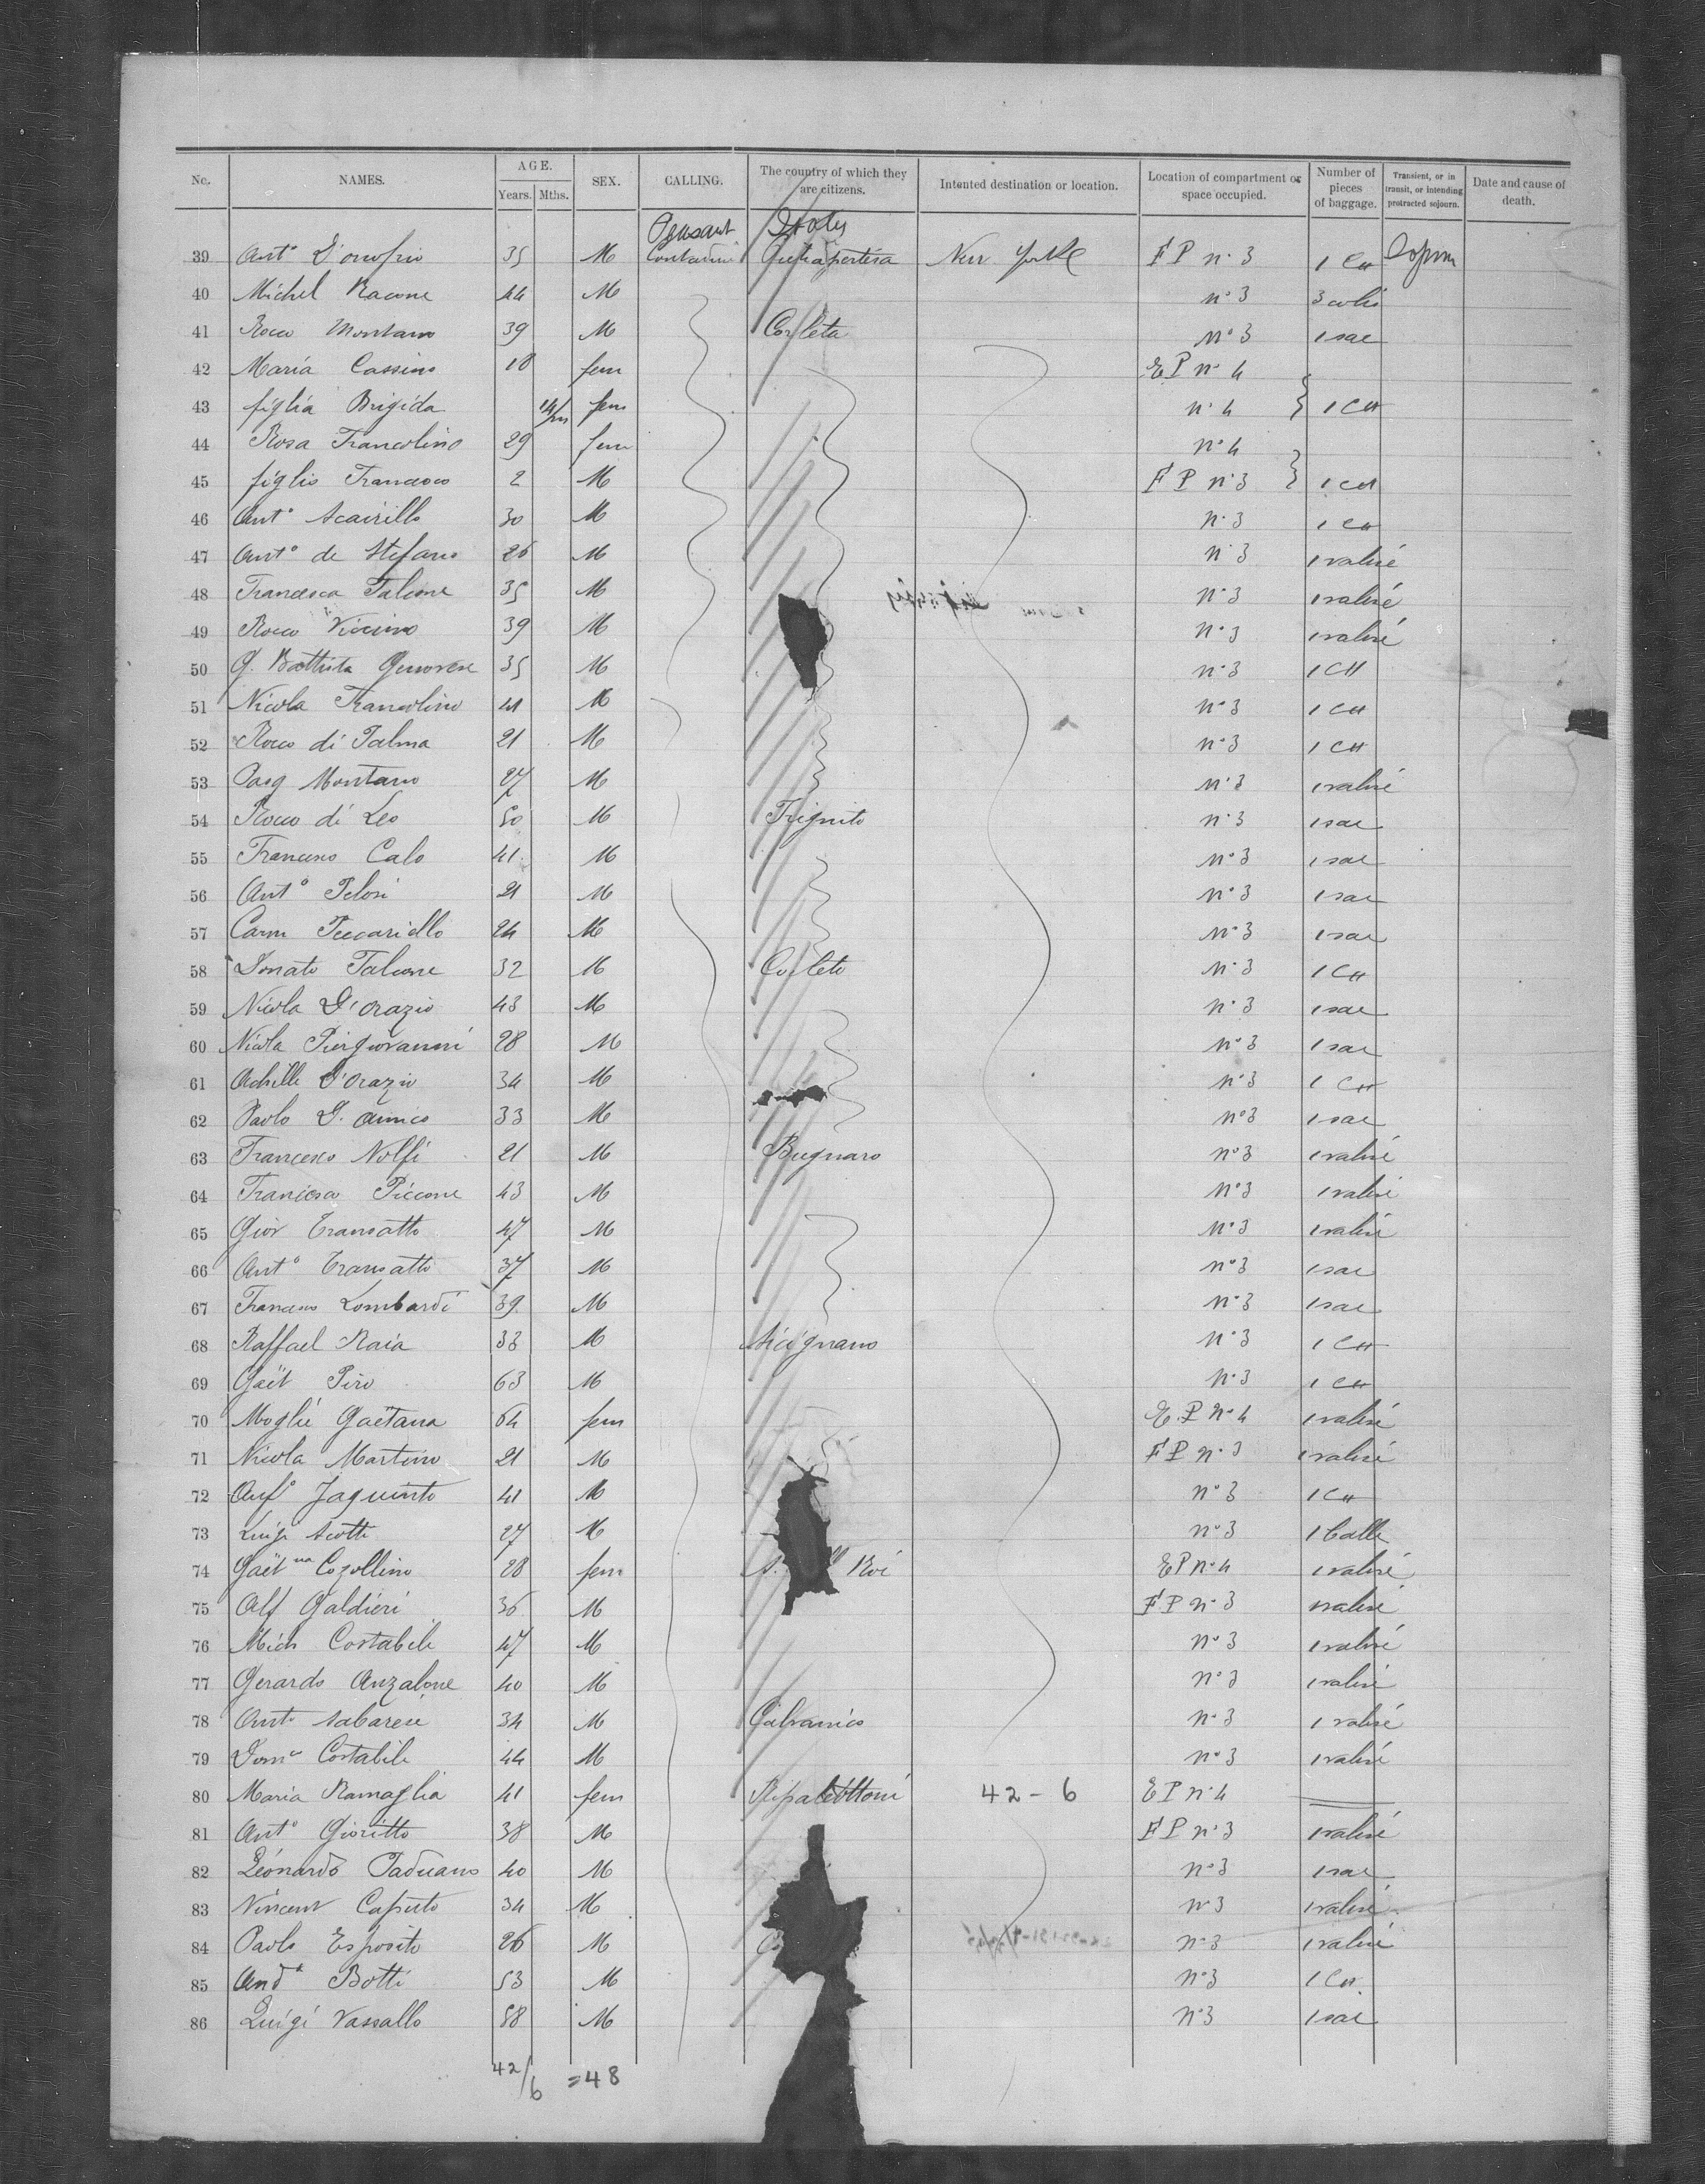 No. NAMES. AGE. Years. Mths. SEX. CALLING. The country of which they are citizens. Intented destination or location. Location of compartment or space occupied. Number of pieces of baggage. Transient, or in transit, or intending protracted sojourn. Date and cause of death.
Peasant Italy
39 Ant° D'onofrio 35 M Contadini New York F P n° 3 1 CH
40 Michel Racone 44 M n° 3 3 colis
41 Rocco Montano 39 M Corleta n° 3 1 sac
42 Maria Cassino 18 fem E P n° 4
43 figlia Brigida 14/m fem n° 4 1 CH
44 Rosa Francolino 29 fem n° 4
45 figlio Francesco 2 M F P n° 3 1 CH
46 Ant° Scairillo 30 M n° 3 1 CH
47 Ant° de Stefano 26 M n° 3 1 valise
48 Francesca Falcone 35 M n° 3 1 valise
49 Rocco 39 M n° 3 1 valise
50 G. Battista Genovese 35 M n° 3 1 CH
51 Nicola Francolino 41 M n° 3 1 CH
52 Rocco di Palma 21 M n° 3 1 CH
53 Pasq Montano 27 M n° 3 1 valise
54 Rocco di Leo 50 M Trignito n° 3 1 sac
55 Francesco Calo 41 M n° 3 1 sac
56 Ant° Pelosi 21 M n° 3 1 sac
57 Carm Peccariello 24 M n° 3 1 sac
58 Donato Falcone 32 M Corleto n° 3 1 CH
59 Nicola D'Orazio 43 M n° 3 1 sac
60 Nicola Piergiovanni 28 M n° 3 1 sac
61 Achille D'Orazio 34 M n° 3 1 CH
62 Paolo D. amico 33 M n° 3 1 sac
63 Francesco Nolfi 21 M Bugnaro n° 3 1 valise
64 Francesco Piccone 43 M n° 3 1 valise
65 Giov Transatto 47 M n° 3 1 valise
66 Ant° Transatti 37 M n° 3 1 sac
67 Francesco Lombardi 39 M n° 3 1 sac
68 Raffael Raia 33 M Sicignano n° 3 1 CH
69 Gaët Piro 63 M n° 3 1 CH
70 Moglie Gaëtana 64 fem E. P n° 4 1 valise
71 Nicola Martino 21 M F P n° 3 1 valise
72 Jaquinto 41 M n° 3 1 CH
73 Luigi Scotti 27 M n° 3 1 balle
74 Gaët na Cozollino 28 fem E P n° 4 1 valise
75 Alf Galdieri 36 M F P n° 3 1 valise
76 Mich Costabile 47 M n° 3 1 valise
77 Gerardo Anzalone 40 M n° 3 1 valise
78 Ant° Sabarese 34 M Calvanico n° 3 1 valise
79 Dom co Costabile 44 M n° 3 1 valise
80 Maria Ramaglia 41 fem Ripabottoni 42 - 6 E P n° 4
81 Ant° Gioritto 38 M F P n° 3 1 valise
82 Léonardo Paduano 40 M n° 3 1 sac
83 Vincent Caputo 34 M n° 3 1 valise
84 Paolo Esposito 26 M n° 3 1 valise
85 And a Botti 53 M n° 3 1 CH
86 Luigi Vassallo 58 M n° 3 1 sac
42/6 = 48